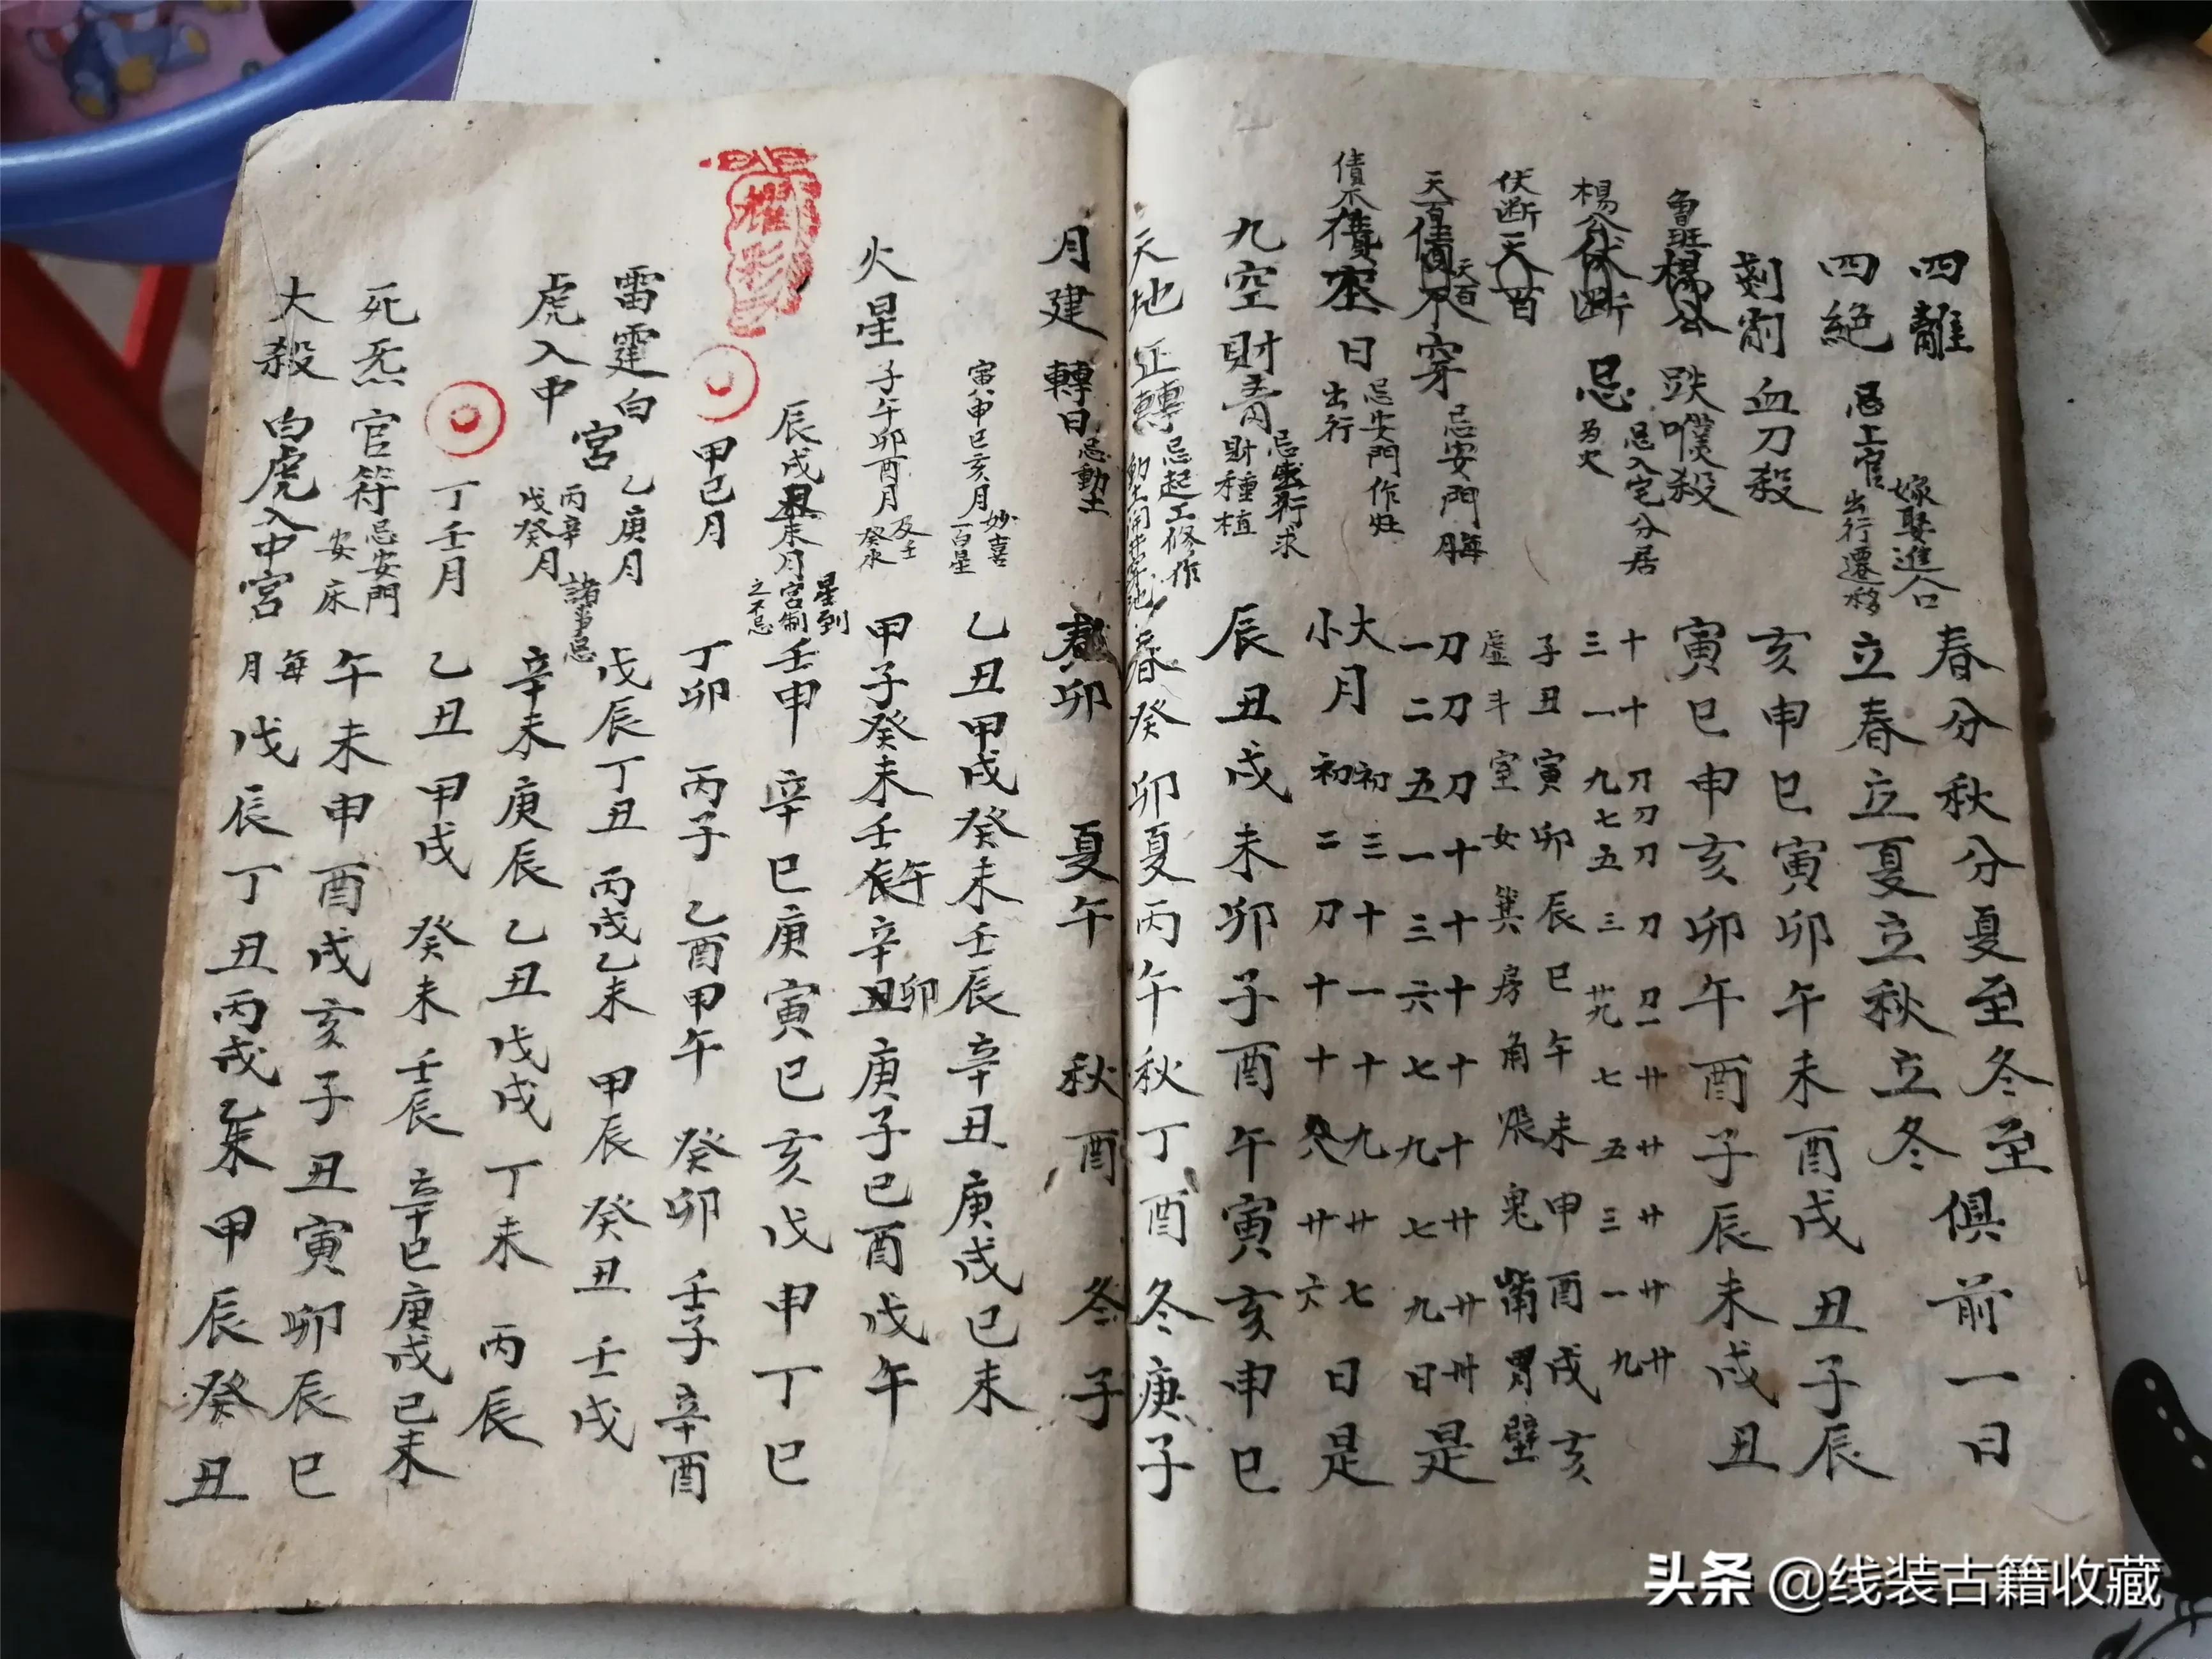 四離 嫁娶進人口 春分秋分夏至冬至俱前一日
四絕 忌上官出行遷移 立春立夏立秋立冬
亥申巳寅卯午未酉戌丑子辰
剗削血刀殺 寅巳申亥卯午酉子辰未戌丑
魯班
楊公 跌㒒殺
忌入宅分居
楊公
伏断 忌
伏断
天百
子丑寅卯辰巳午未申酉戌亥
虛斗室女箕房角張鬼觜胃壁
天百
不穿 忌安門
一二五一三六七九七九日是
債不
日 忌安門作灶出行
大月初三十一十九廿七
小月初二刀十十八廿六日是
九空財 忌出行求財種植 辰丑戌未卯子酉午寅亥申巳
天地正轉 忌起工修作動土開井穿池 春癸卯夏丙午秋丁酉冬庚子
月建轉日 忌動土 春卯 夏午 秋酉 冬子
寅申巳亥月 妙喜一百星 乙丑甲戌癸未壬辰辛丑庚戌己未
火星 子午卯酉月 及壬癸水 甲子癸未壬午辛卯庚子己酉戊午
辰戌丑未月 星到宮制之不忌 壬申辛巳庚寅己亥戊申丁巳
耀彩
甲己月 丁卯丙子乙酉甲午癸卯壬子辛酉
雷霆白 乙庚月 戊辰丁丑丙戌乙未甲辰癸丑壬戌
虎入中宮 丙辛戊癸月 諸事忌 辛未庚辰乙丑戊戌丁未丙辰
丁壬月 乙丑甲戌癸未壬辰辛巳庚戌己未
死炁官符 忌安門安床 午未申酉戌亥子丑寅卯辰巳
大殺白虎入中宮 每月 戊辰丁丑丙戌乙未甲辰癸丑
头条 @线装古籍收藏